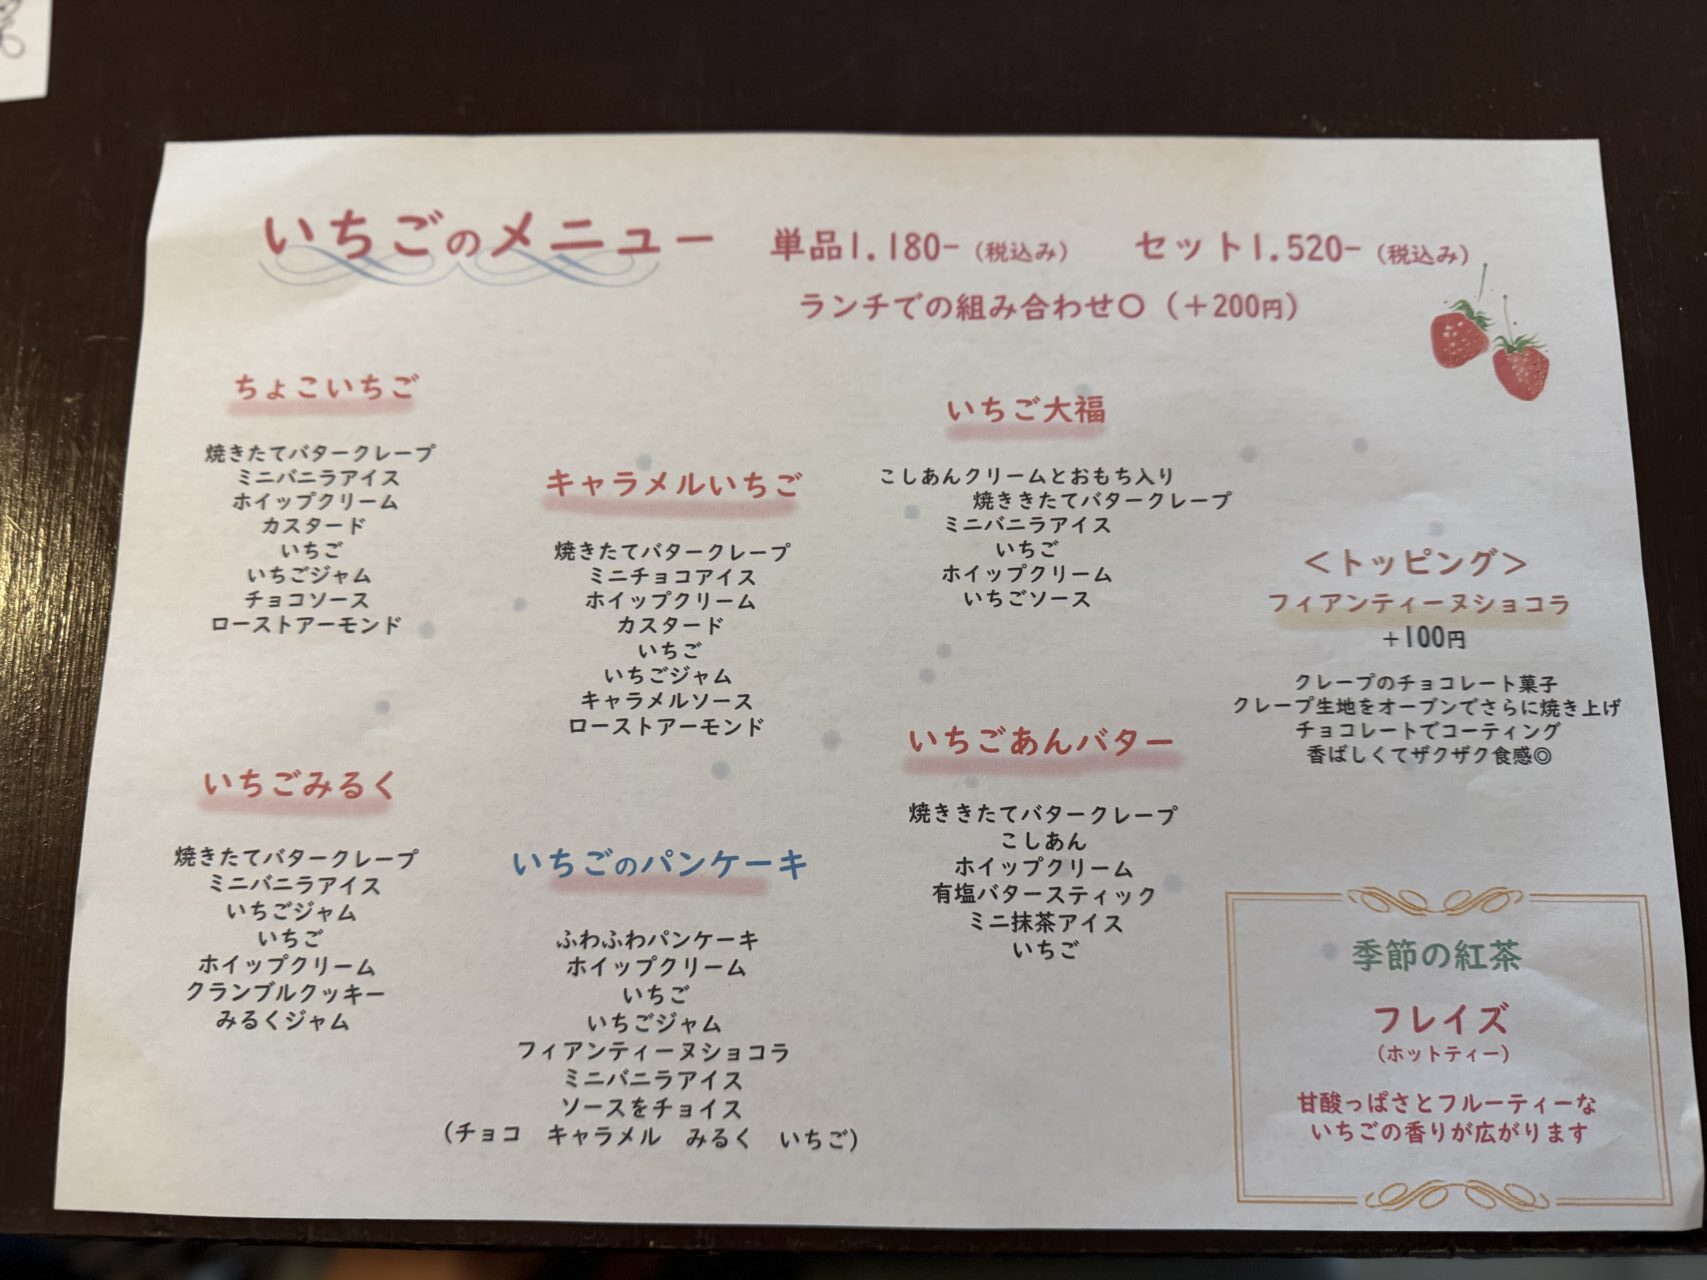 いちごのメニュー
単品1.180-(税込み) セット1.520-(税込み)
ランチでの組み合わせ〇(+200円)
ちょこいちご
焼きたてバタークレープ
ミニバニラアイス
ホイップクリーム
カスタード
いちご
いちごジャム
チョコソース
ローストアーモンド
いちごみるく
焼きたてバタークレープ
ミニバニラアイス
いちごジャム
いちご
ホイップクリーム
クランブルクッキー
みるくジャム
キャラメルいちご
焼きたてバタークレープ
ミニチョコアイス
ホイップクリーム
カスタード
いちご
いちごジャム
キャラメルソース
ローストアーモンド
いちごのパンケーキ
ふわふわパンケーキ
ホイップクリーム
いちご
いちごジャム
フィアンティーヌショコラ
ミニバニラアイス
ソースをチョイス
(チョコ キャラメル みるく いちご)
いちご大福
こしあんクリームとおもち入り
焼ききたてバタークレープ
ミニバニラアイス
いちご
ホイップクリーム
いちごソース
いちごあんバター
焼ききたてバタークレープ
こしあん
ホイップクリーム
有塩バタースティック
ミニ抹茶アイス
いちご
<トッピング>
フィアンティーヌショコラ
+100円
クレープのチョコレート菓子
クレープ生地をオーブンでさらに焼き上げ
チョコレートでコーティング
香ばしくてザクザク食感◎
季節の紅茶
フレイズ
(ホットティー)
甘酸っぱさとフルーティーな
いちごの香りが広がります